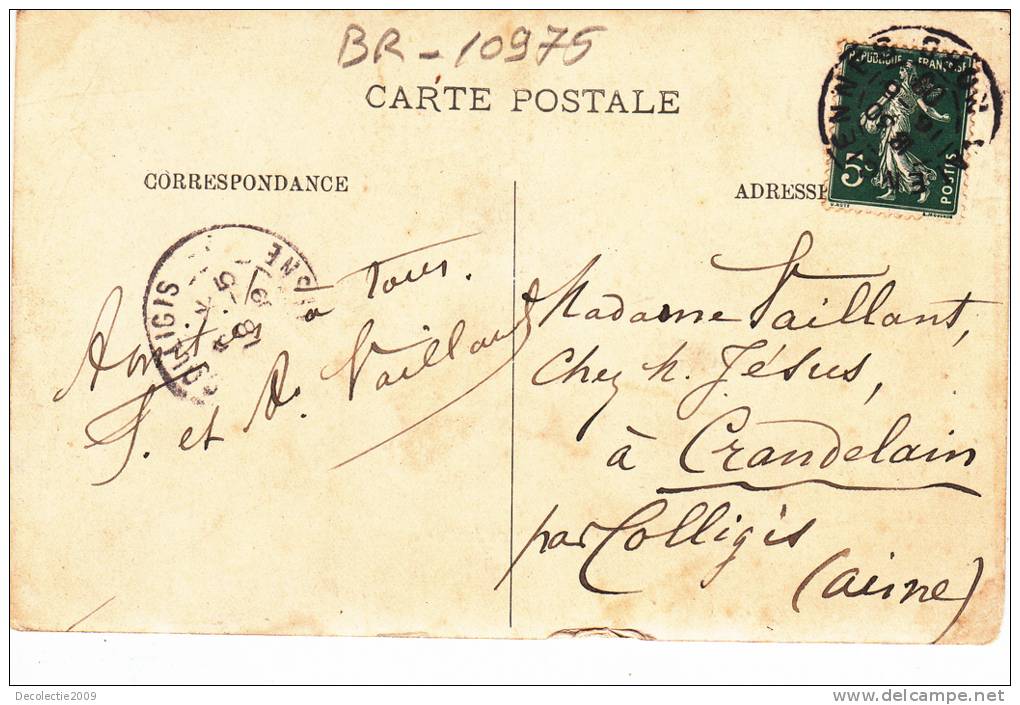 BR-10975
CARTE POSTALE
CORRESPONDANCE
ADRESSE
REPUBLIQUE FRANÇAISE
5c
POSTES
COLLIGIS
AISNE
18 5
Amitiés à tous.
et D. Vaillant
Madame Vaillant,
Chez M. Jésus,
à Crandelain
par Colligis
(aisne)
Decolectie2009
www.delcampe.net